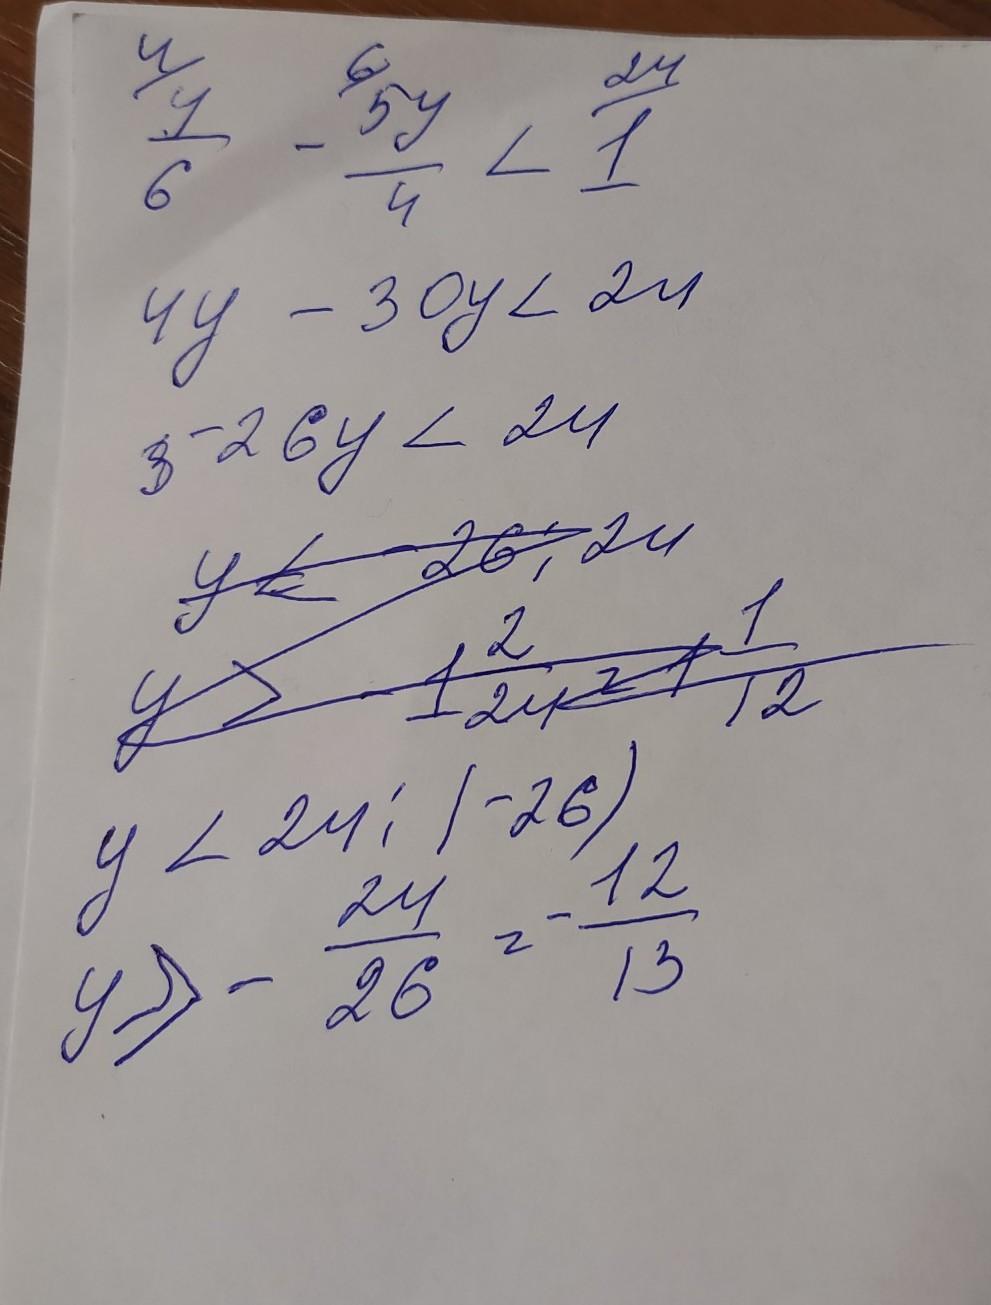 4/ y/6 - 6/ 5y/4 < 24/ 1
4y - 30y < 24
-26y < 24
y < -26 : 24
y > -1 2/24 = 1 1/12
y < 24 : (-26)
y > - 24/26 = - 12/13